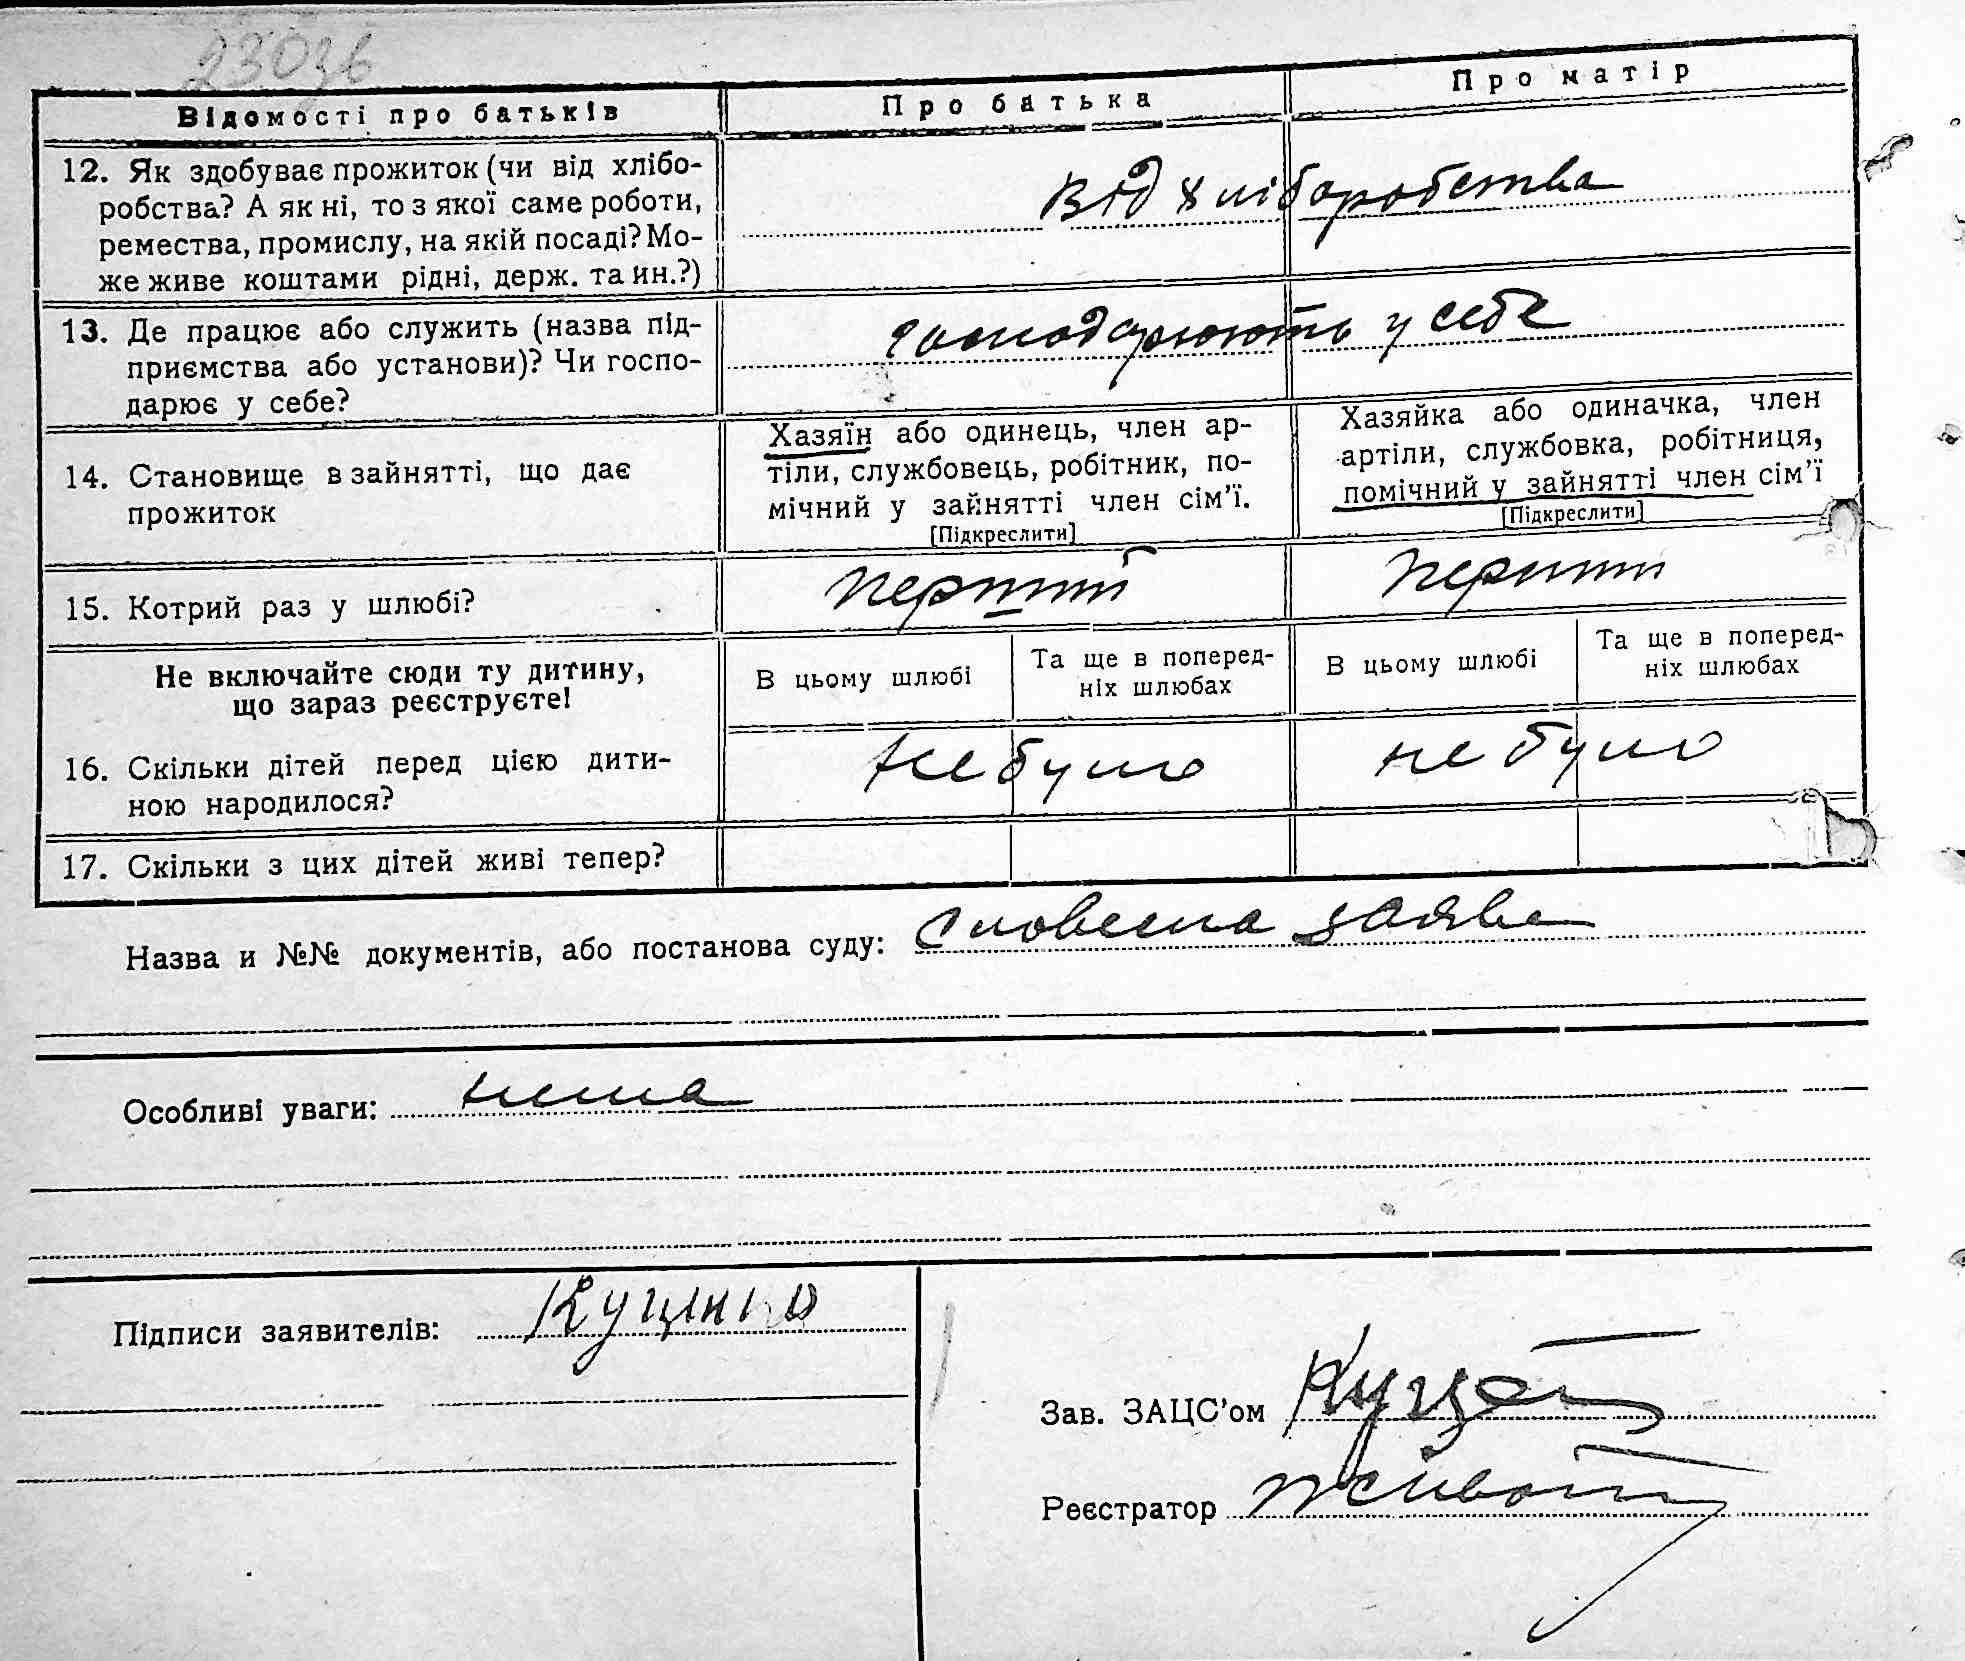 230зв
Відомості про батьків
Про батька
Про матір
12. Як здобуває прожиток (чи від хлібо-
робства? А як ні, то з якої саме роботи,
ремества, промислу, на якій посаді? Мо-
же живе коштами рідні, держ. та ин.?)
Від хліборобства
13. Де працює або служить (назва під-
приємства або установи)? Чи госпо-
дарює у себе?
господарюють у себе
14. Становище в зайнятті, що дає
прожиток
Хазяїн або одинець, член ар-
тіли, службовець, робітник, по-
мічний у зайнятті член сім’ї.
[Підкреслити]
Хазяйка або одиначка, член
артіли, службовка, робітниця,
помічний у зайнятті член сім’ї
[Підкреслити]
15. Котрий раз у шлюбі?
перший
перший
Не включайте сюди ту дитину,
що зараз реєструєте!
В цьому шлюбі
Та ще в поперед-
ніх шлюбах
В цьому шлюбі
Та ще в поперед-
ніх шлюбах
16. Скільки дітей перед цією дити-
ною народилося?
не було
не було
17. Скільки з цих дітей живі тепер?
Назва и №№ документів, або постанова суду: Словесна заява
Особливі уваги: нема
Підписи заявителів:
Зав. ЗАЦС’ом
Реєстратор